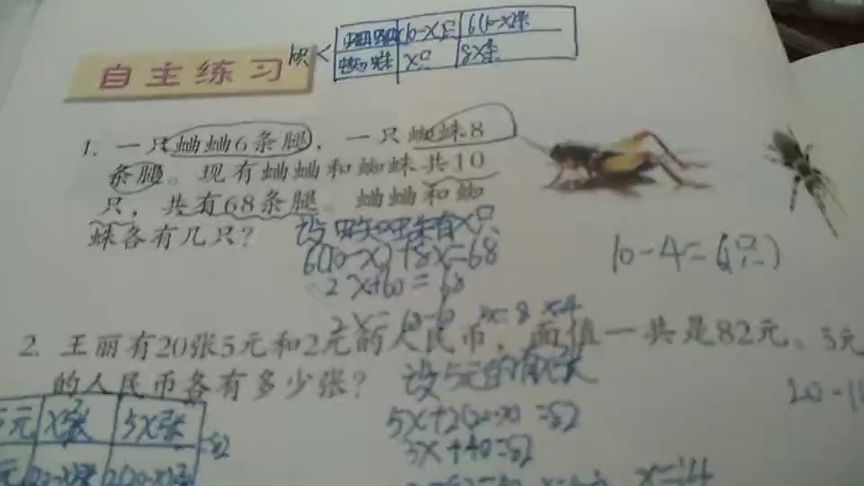 蛐蛐 (10-x)只 6(10-x)条
蜘蛛 x只 8x条
自主练习
1. 一只蛐蛐6条腿，一只蜘蛛8
条腿。现有蛐蛐和蜘蛛共10
只，共有68条腿。蛐蛐和蜘
蛛各有几只？
设蜘蛛有x只
6(10-x)+8x=68
2x+60=68
10-4=6(只)
2x=68-60 2x=8 x=4
2. 王丽有20张5元和2元的人民币，面值一共是82元。5元
的人民币各有多少张？
设5元的有x张
5元 x张 5x张 =82
5x+2(20-x)=82
3x+40=82